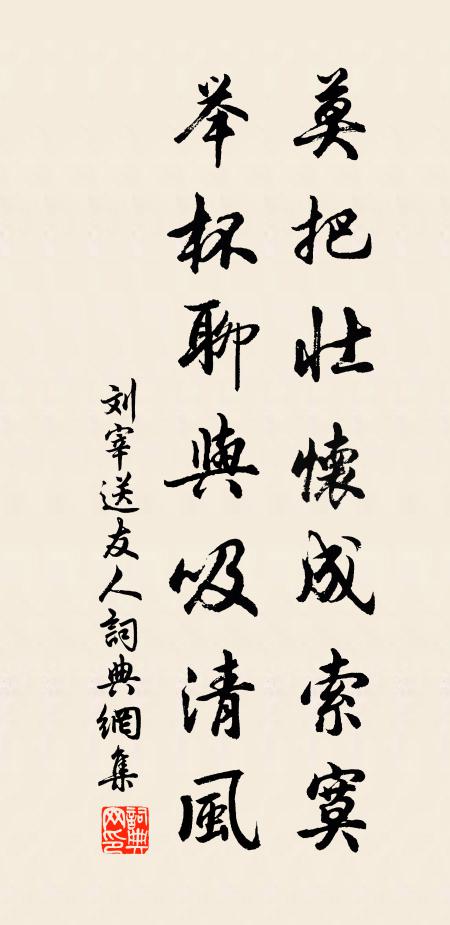 莫把壮懷成索寞
举杯聊與吸清風
刘宰送友人詞典網集
詞典網印